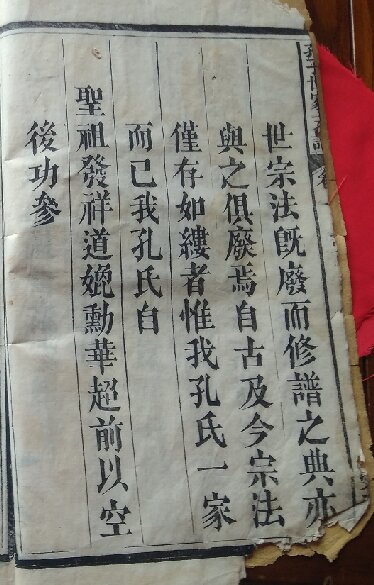 世宗法既廢而修譜之典亦
與之俱廢焉自古及今宗法
僅存如縷者惟我孔氏一家
而已我孔氏自
聖祖發祥道媲勳華超前以空
後功參